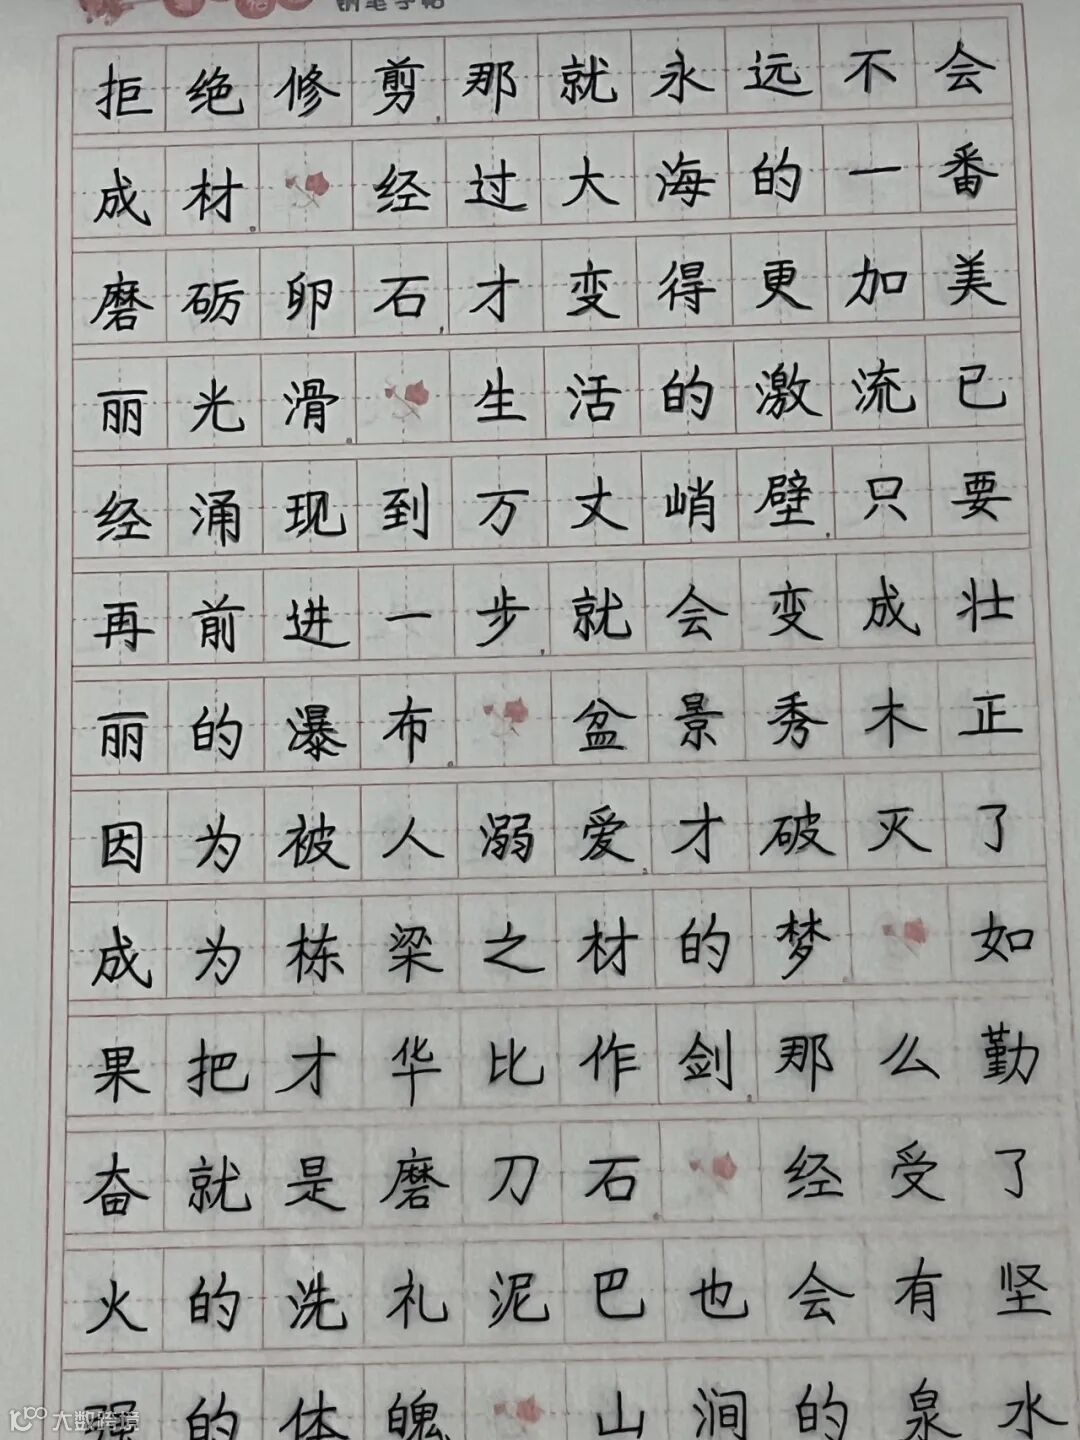 钢笔字帖
拒绝修剪,那就永远不会
成材。经过大海的一番
磨砺卵石,才变得更加美
丽光滑。生活的激流已
经涌现到万丈峭壁,只要
再前进一步,就会变成壮
丽的瀑布。盆景秀木正
因为被人溺爱,才破灭了
成为栋梁之材的梦。如
果把才华比作剑,那么勤
奋就是磨刀石。经受了
火的洗礼泥巴也会有坚
强的体魄 山涧的泉水
大数跨境